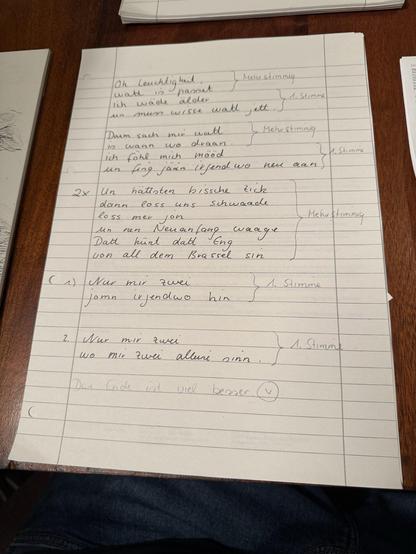 Oh Leuchtigkeit, Mehrstimmig
watt is passet
ich wäde älder 1. Stimme
un muss wisse watt jett.
Dum sach mir watt Mehrstimmig
is wann wo draan
ich föhl mich mööd 1. Stimme
un fing jään irjendwo neu aan
2x Un hättsten bissche Zick
dann loss uns schwaade
loss mer jon Mehrstimmig
un nen Neuanfang waage
Datt hünt datt Eng
von all dem Brassel sin
( 1) Nur mir zwei 1. Stimme
jomn irjendwo hin
2. Nur mir zwei 1. Stimme
wo mir zwei alleni sinn.
Das Ende ist viel besser
(